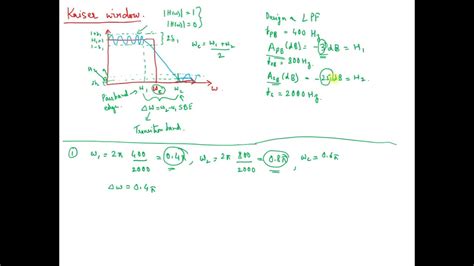 Kaiser window.
|H(ω)| = 1 }
|H(ω)| = 0 }
1+δ₁
H₁
1-δ₁
} 2δ₁
ω_c = (ω₁ + ω₂) / 2
H₂
δ₂
ω₁ ω_c ω₂ ω
Passband edge.
Δω = ω₂ - ω₁
SBE
Transition band.
Design a LPF
f_PB = 400 Hz
A_PB (dB) = -3 dB = H₁
f_SB = 800 Hz
A_SB (dB) = -25 dB = H₂
f_s = 2000 Hz
① ω₁ = 2π 400/2000 = 0.4π, ω₂ = 2π 800/2000 = 0.8π, ω_c = 0.6π
Δω = 0.4π